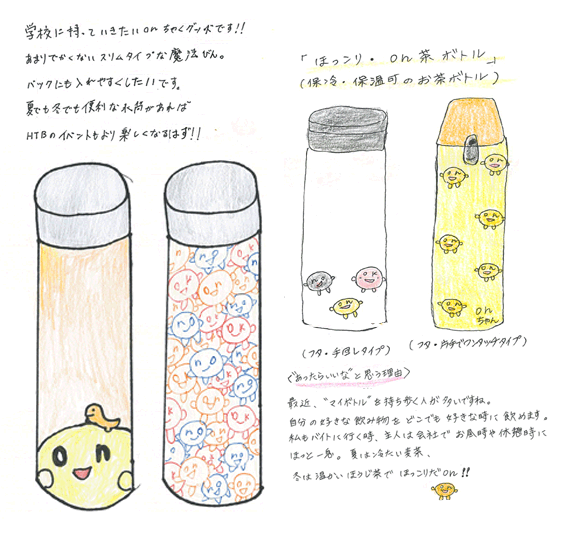 学校に持っていきたいonちゃんグッズです!!
あまりでかくないスリムタイプな魔法びん。
バックにも入れやすくしたいです。
夏でも冬でも便利な水筒があれば
HTBのイベントもより楽しくなるはず!!
on
「ほっこり・on茶ボトル」
(保冷・保温可のお茶ボトル)
on
ちゃん
(フタ・手回しタイプ)
(フタ・片手でワンタッチタイプ)
〈"あったらいいな"と思う理由〉
最近、"マイボトル"を持ち歩く人が多いですね。
自分の好きな飲み物を どこでも 好きな時に 飲めます。
私もバイトに行く時、主人は会社で お昼時や休憩時に
ほっと一息。 夏は冷たい麦茶、
冬は温かいほうじ茶で ほっこりだon!!